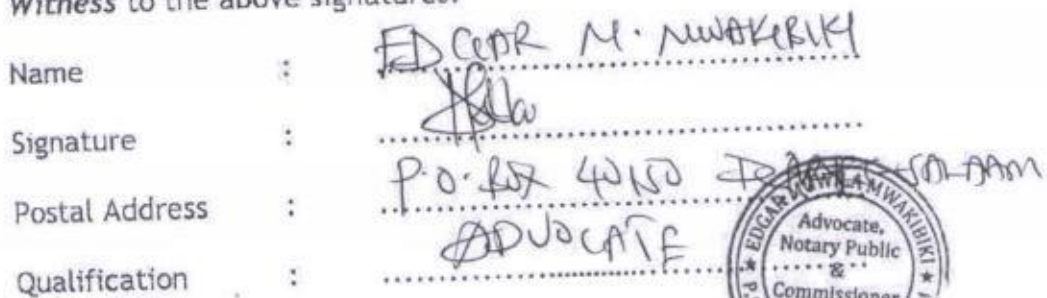 Witness to the above signatures:
Name : EDGAR M. MWAKIBIKI
Signature :
Postal Address : P.O. BOX 40150 DAR-ES-SALAAM
Qualification : ADVOCATE
EDGAR MWAKIBIKI
Advocate,
Notary Public
&
Commissioner